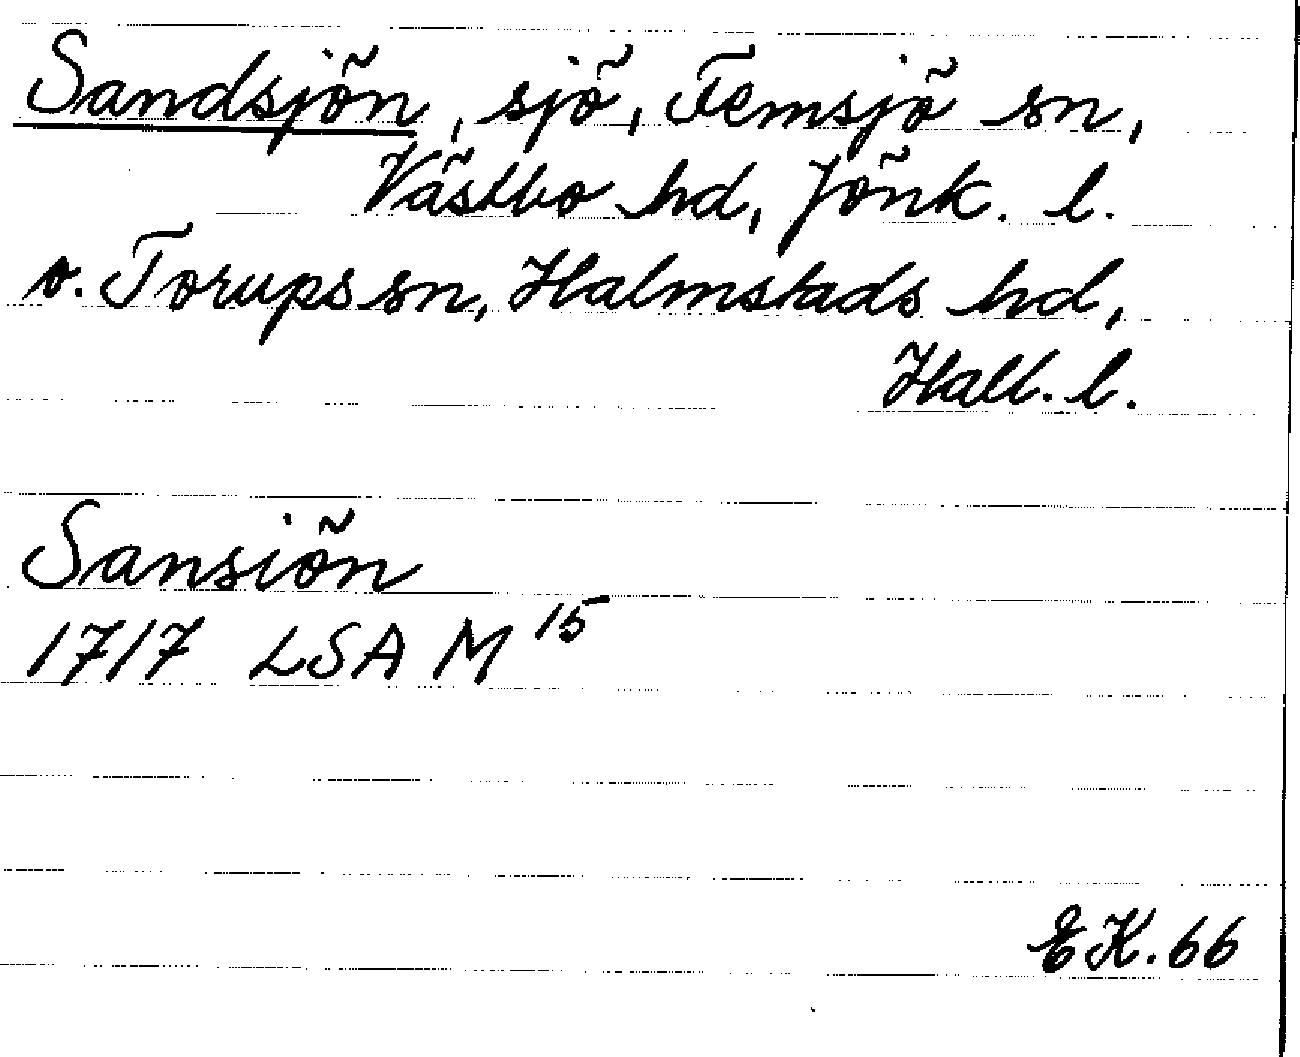 Sandsjön, sjö, Femsjö sn,
Västbo hd, Jönk. l.
o. Torups sn, Halmstads hd,
Hall. l.
Sansiön
1717 LSA M 15
EK. 66